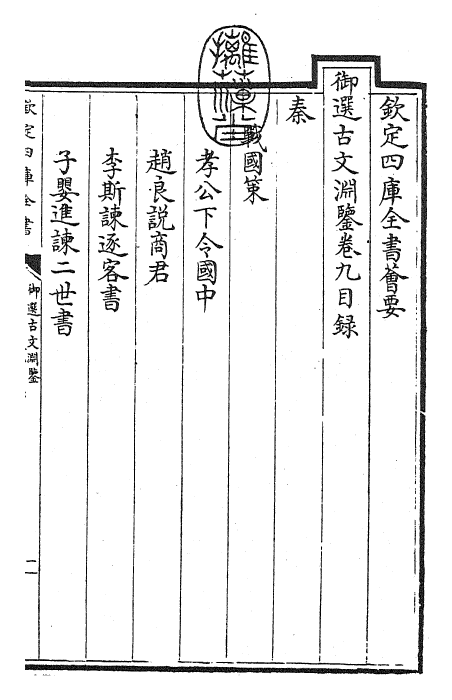 欽定四庫全書薈要
御選古文淵鑒卷九目録
秦
戰國策
孝公下令國中
趙良説商君
李斯諫逐客書
子嬰進諫二世書
欽定四庫全書
御選古文淵鑒